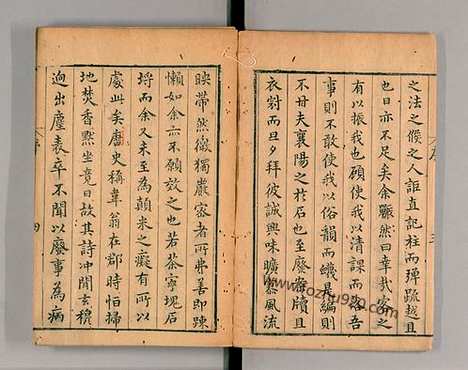 之法之候之人詎直記柱而殫蹏越且
也曰亦不足矣余蹶然曰幸哉客之
有以振我也顧使我以清課而俗吾
事則不敢使我以俗韻而蛾是編則
不毋夫襄陽之於石也至廢案牘且
衣對而旦夕拜彼誠興味曠泰風流
映帶然微獨嚴家者所弗善即踈
懶如余亦不願效之也若茶寧塊石
埒而余又未至為顛米之癡有所以
處此矣唐史稱韋翁在郡時恒掃
地焚香黙坐竟日故其詩冲閒玄穆
逈出塵表卒不聞以廢事為病